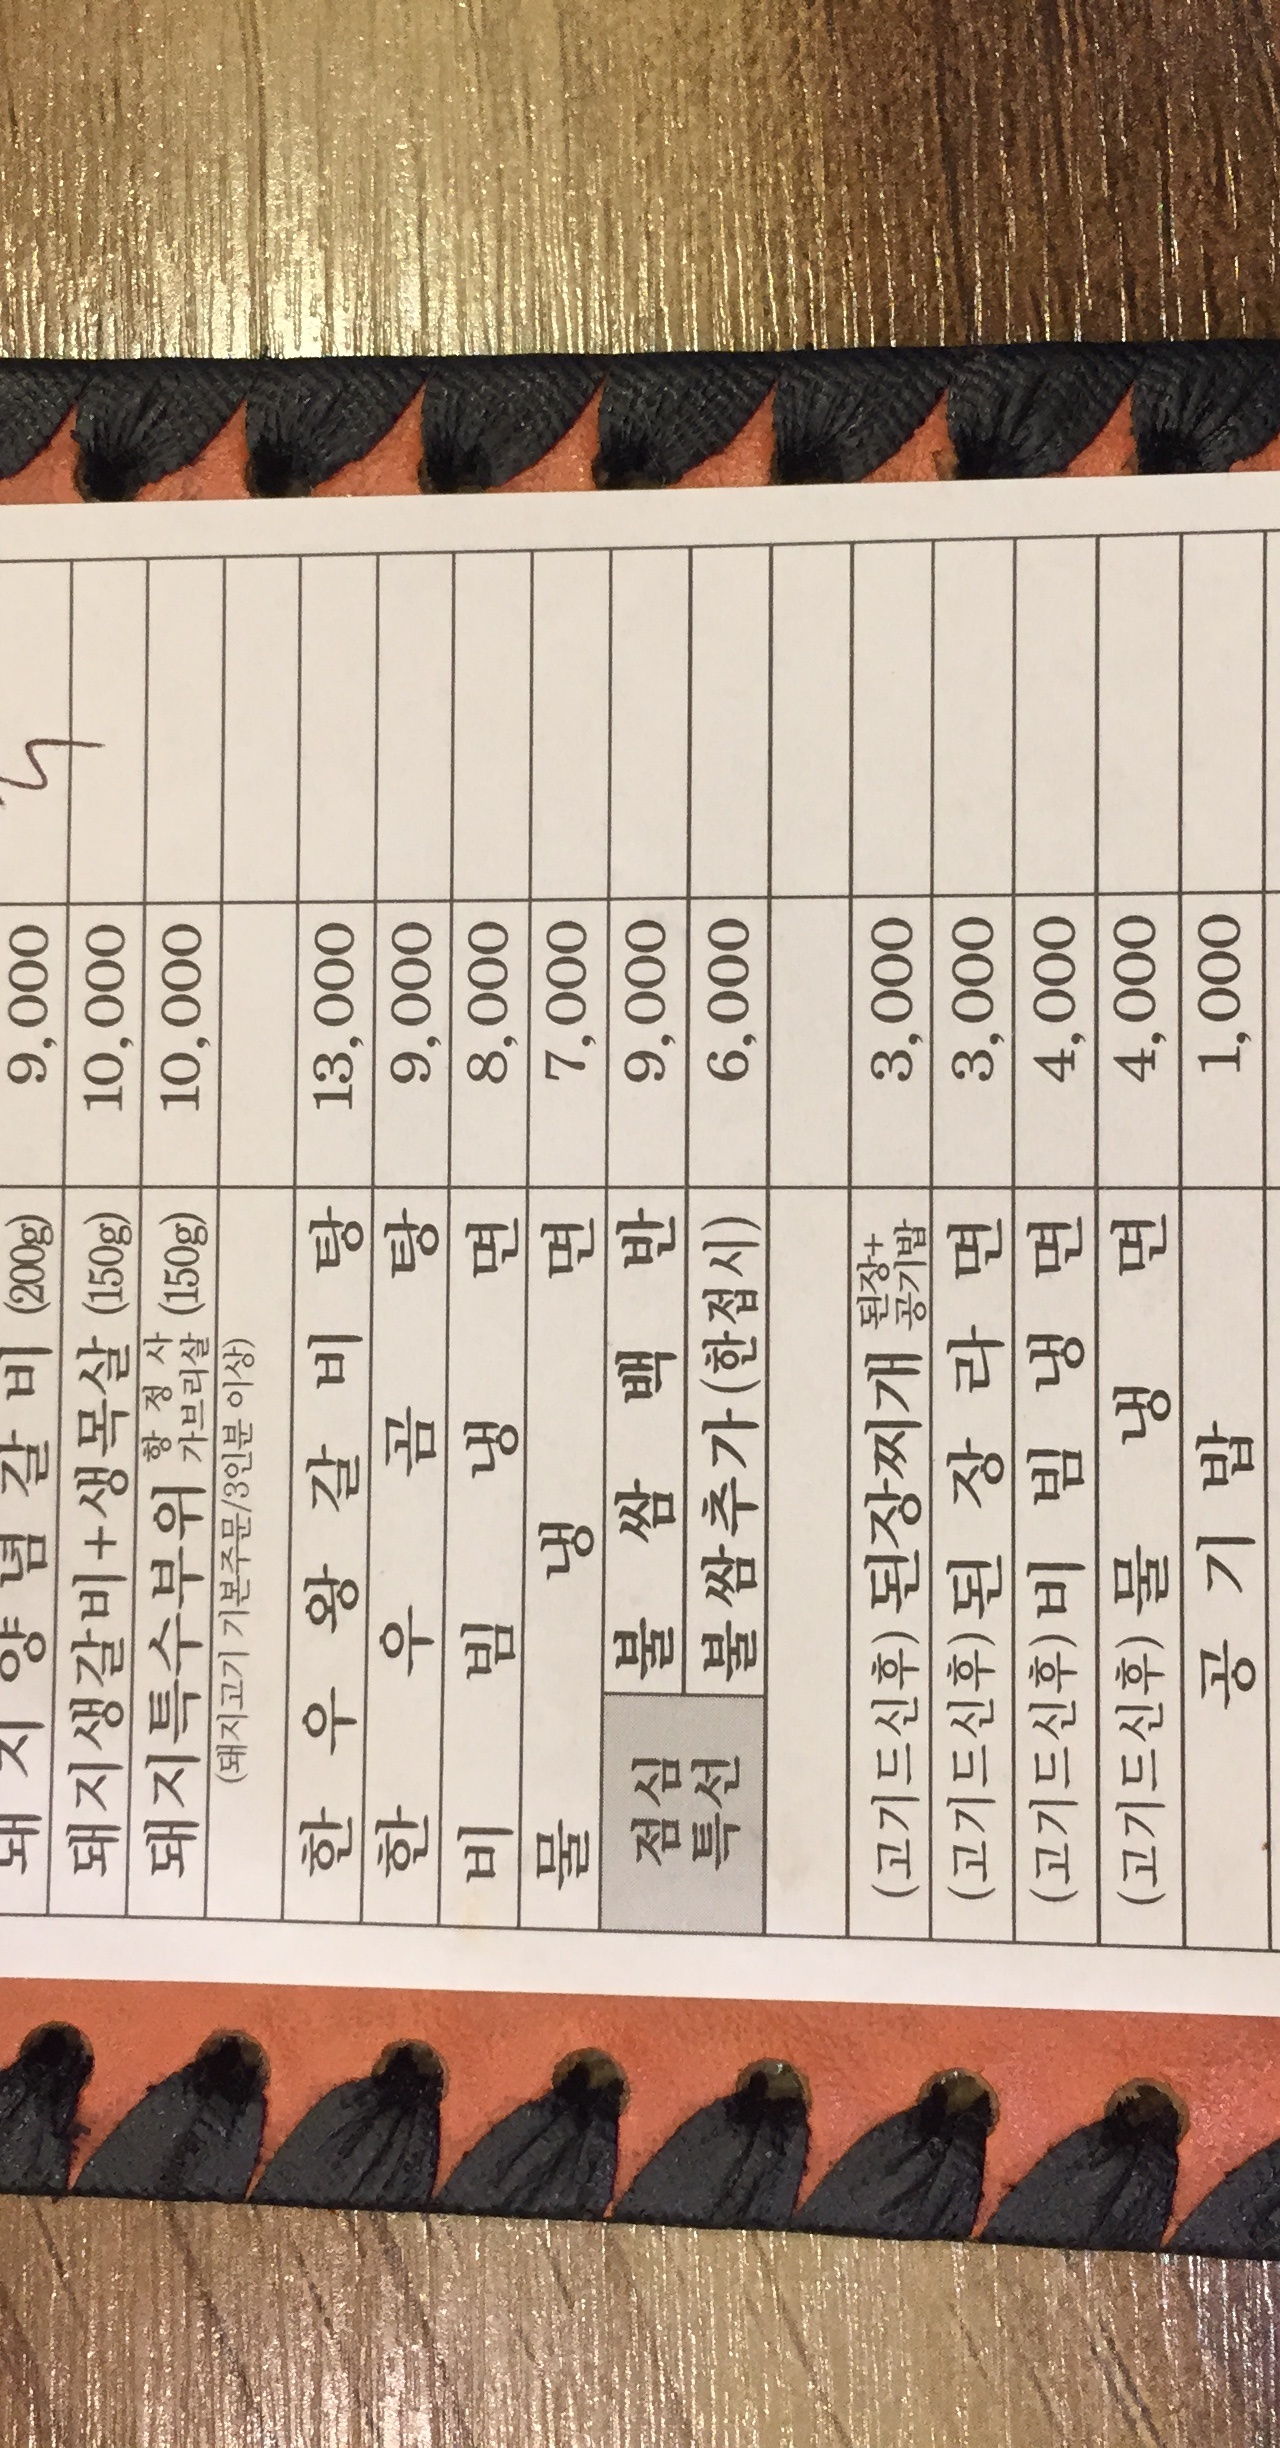 돼지양념갈비 (200g) 9,000
돼지생갈비+생목살 (150g) 10,000
돼지특수부위 항정사 가브리살 (150g) 10,000
(돼지고기 기본주문/3인분 이상)
한우왕갈비탕 13,000
한우곰탕 9,000
비빔냉면 8,000
물냉면 7,000
점심특선 불쌈백반 9,000
불쌈추가(한접시) 6,000
(고기드신후) 된장찌개 된장+공기밥 3,000
(고기드신후) 된장라면 3,000
(고기드신후) 비빔냉면 4,000
(고기드신후) 물냉면 4,000
공기밥 1,000